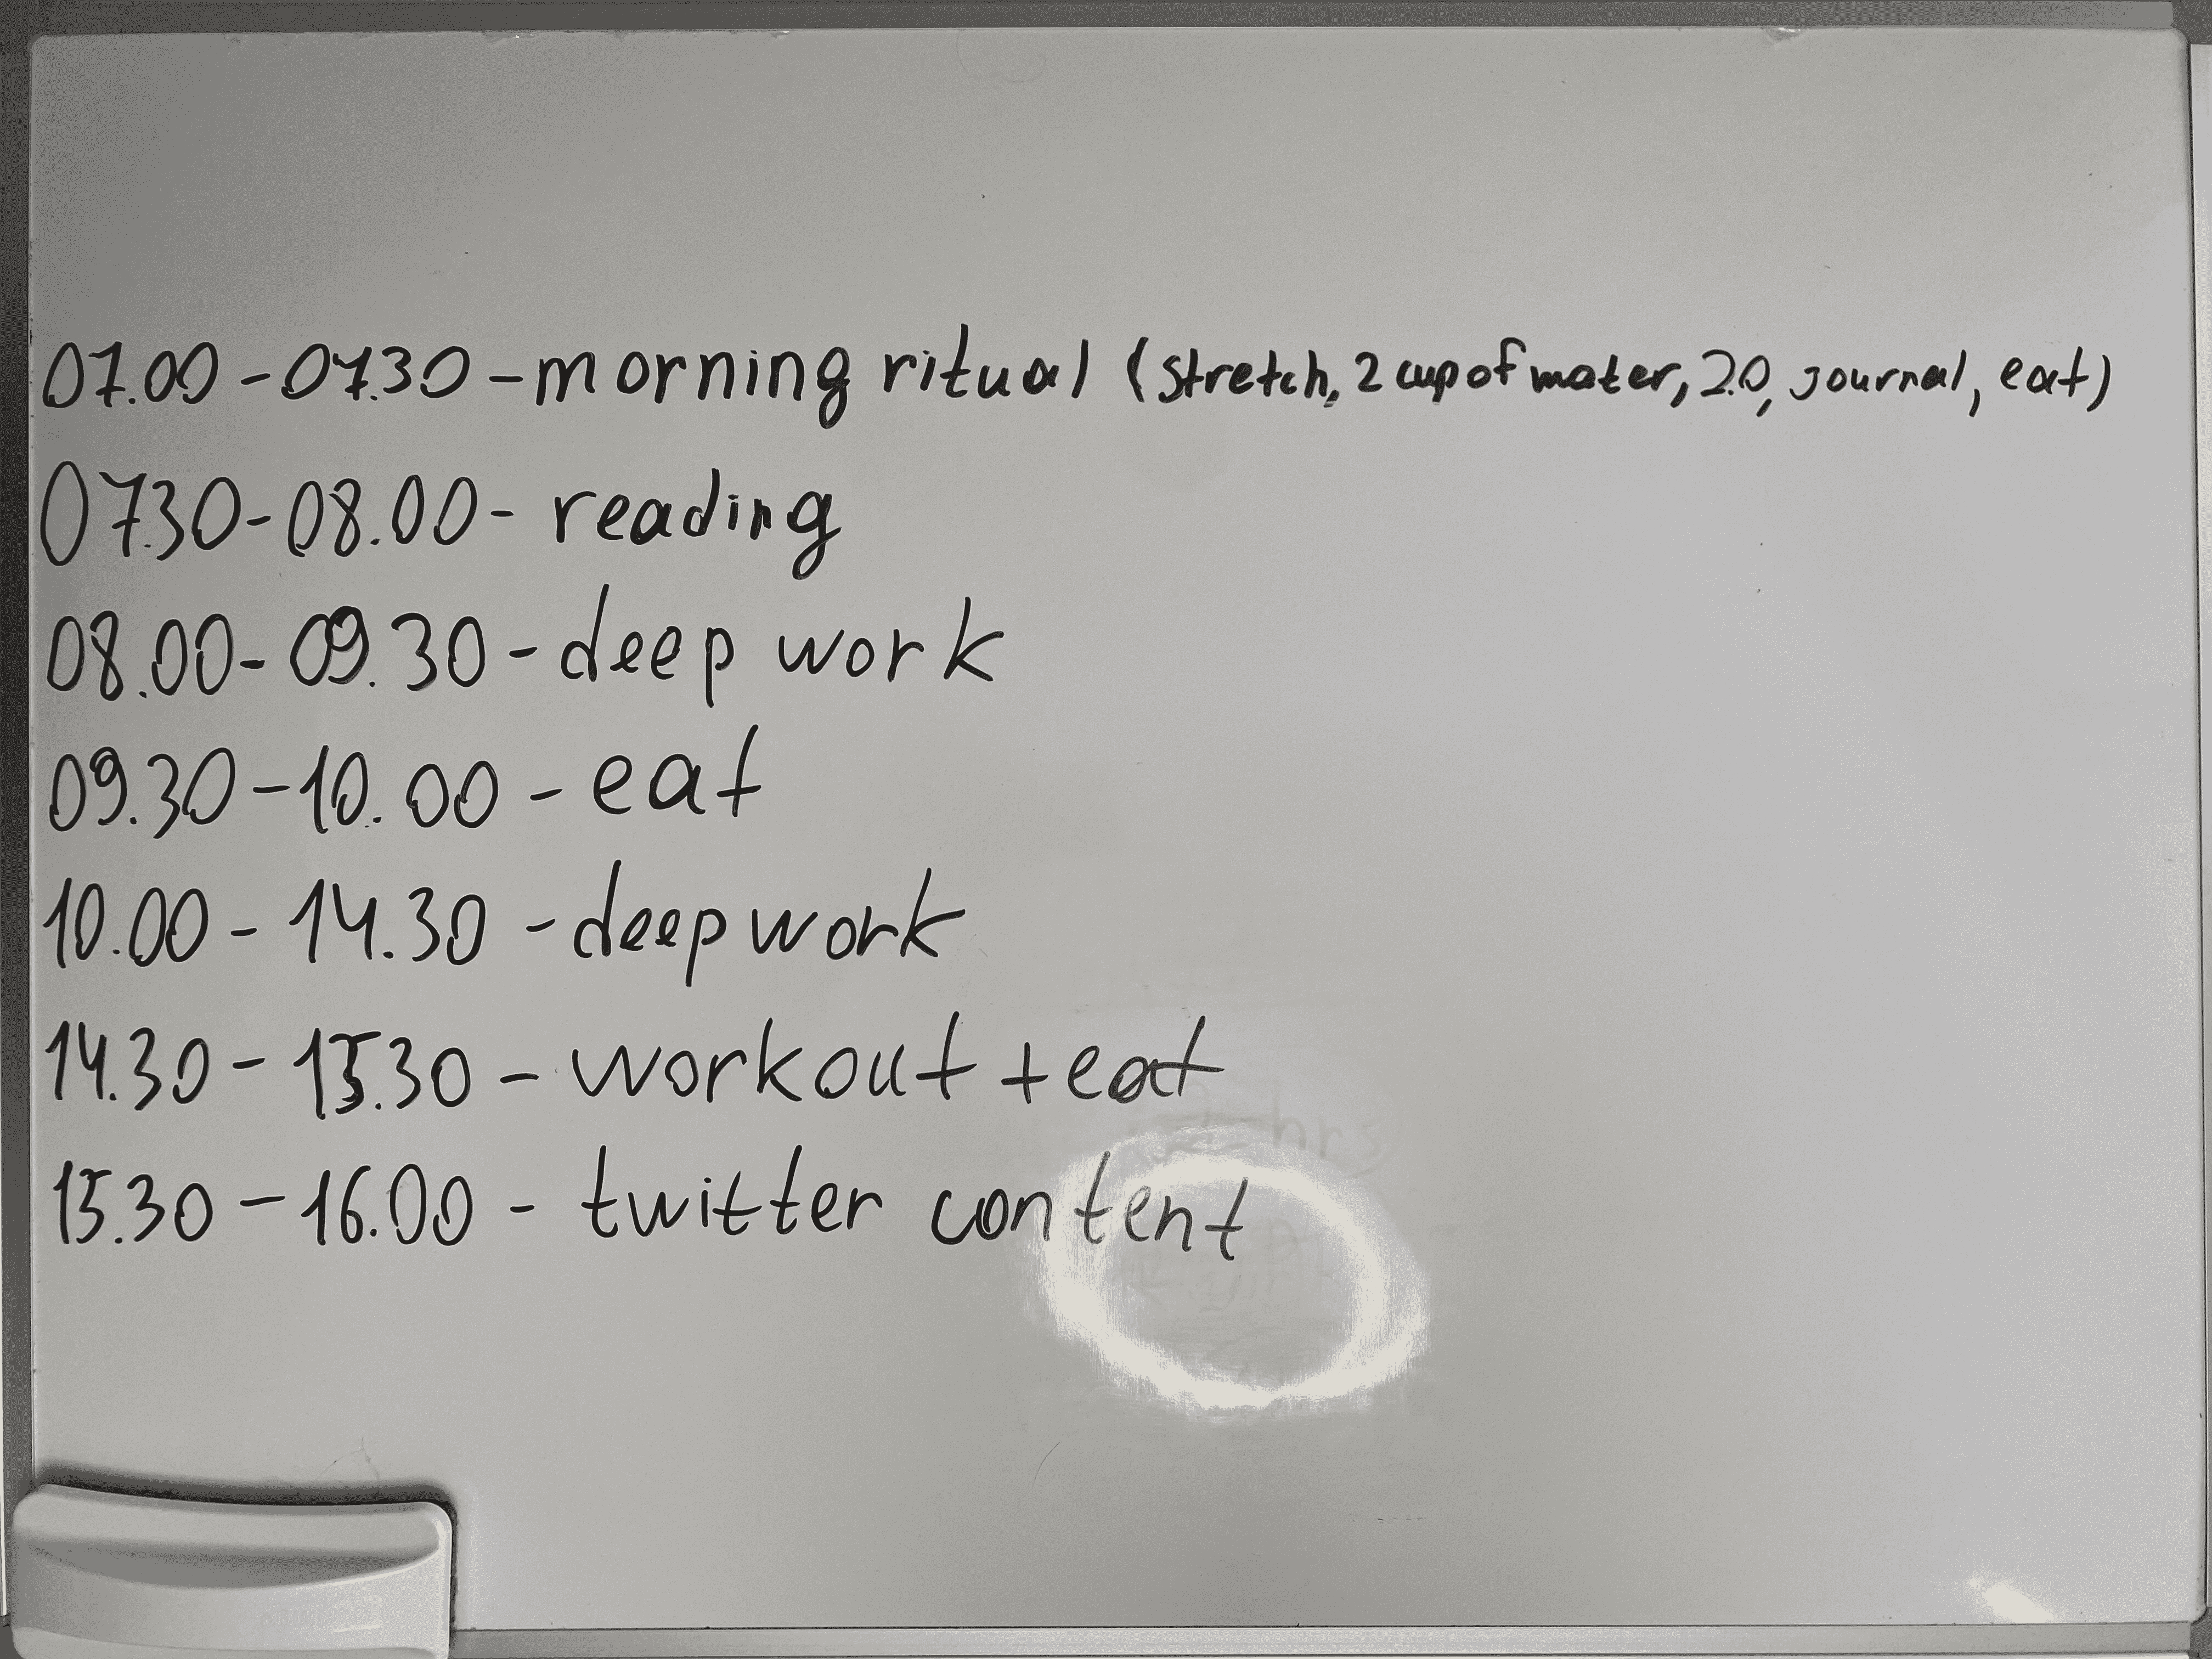 07.00 - 07.30 - morning ritual (stretch, 2 cup of water, 20, journal, eat)
07.30 - 08.00 - reading
08.00 - 09.30 - deep work
09.30 - 10.00 - eat
10.00 - 14.30 - deep work
14.30 - 15.30 - workout + eat
15.30 - 16.00 - twitter content